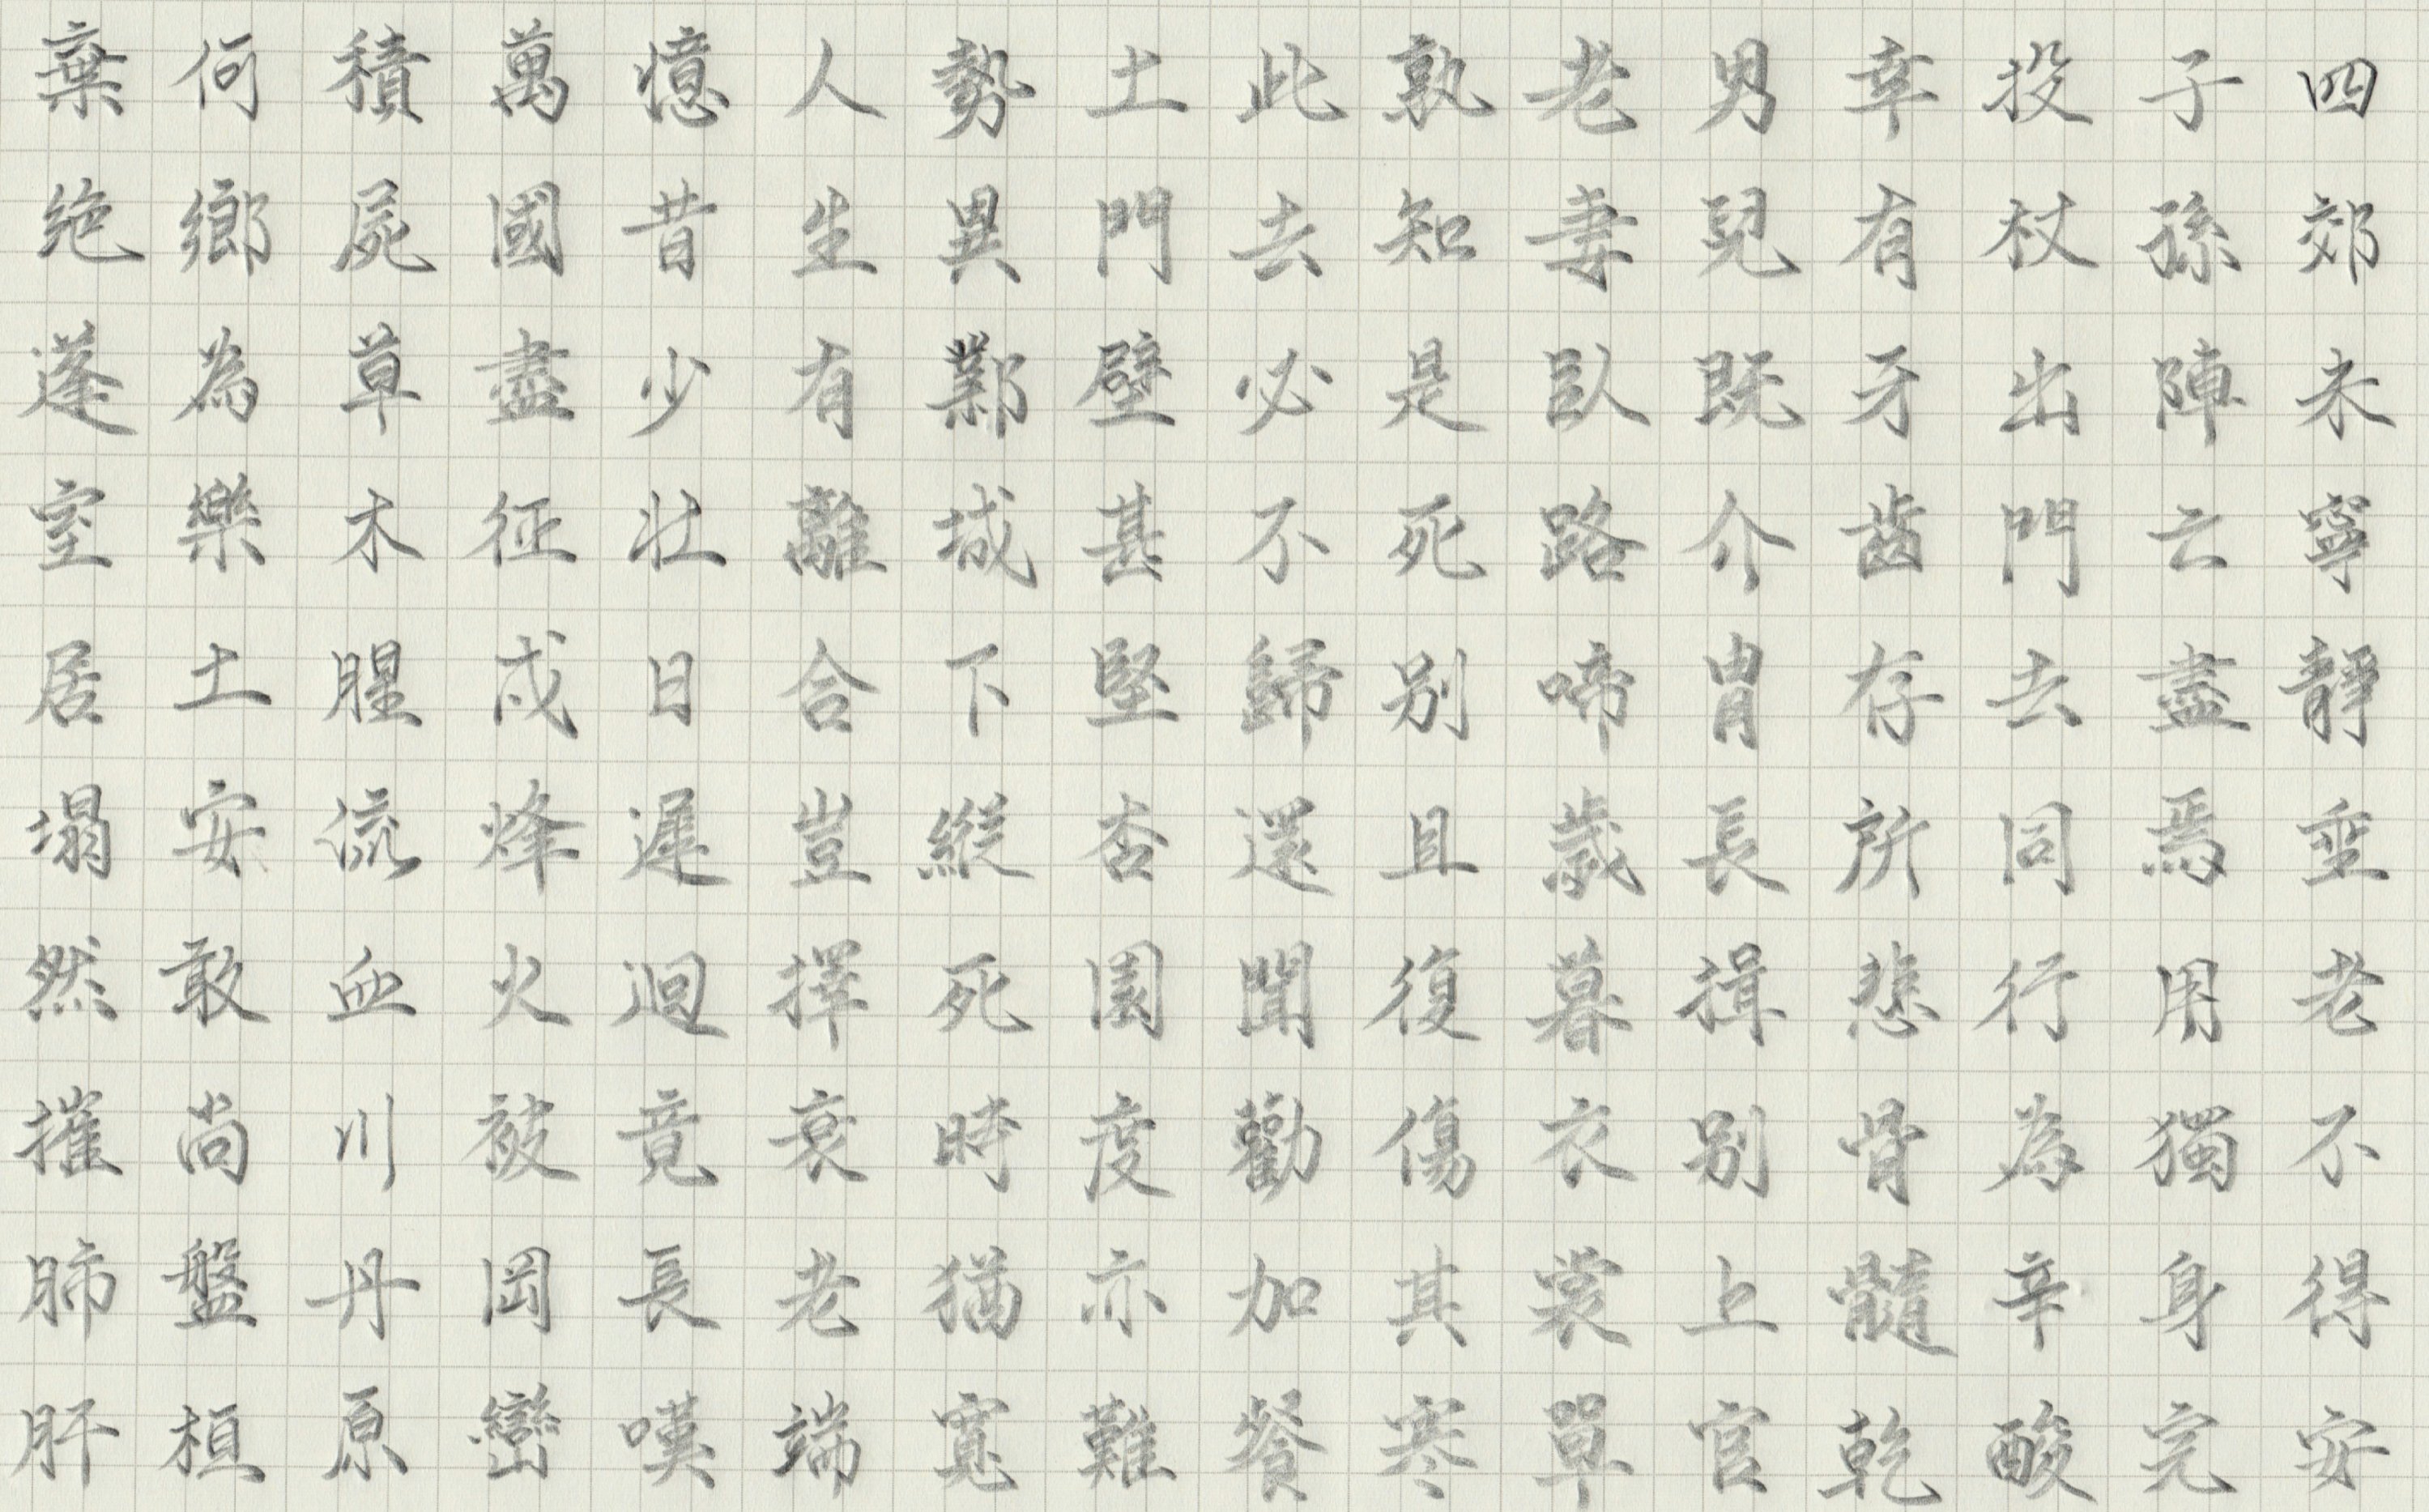 四郊未寧靜垂老不得安
子孫陣亡盡焉用獨身完
投杖出門去同行為辛酸
幸有牙齒存所悲骨髓乾
男兒既介胄長揖別上官
老妻臥路啼歲暮衣裳單
孰知是死別且復傷其寒
此去必不歸還聞勸加餐
土門壁甚堅杏園度亦難
勢異鄴城下縱死時猶寬
人生有離合豈擇衰老端
憶昔少壯日遲迴竟長嘆
萬國盡征戍烽火被岡巒
積屍草木腥流血川丹原
何鄉為樂土安敢尚盤桓
棄絕蓬室居塌然摧肺肝